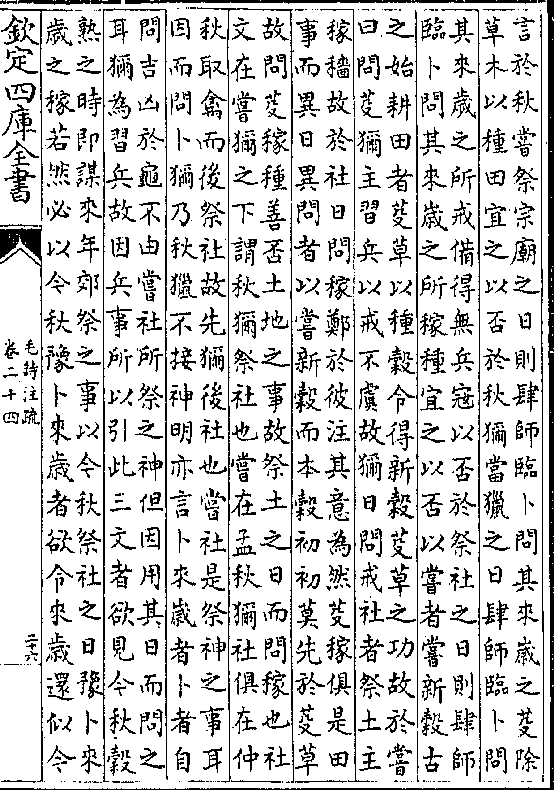 言於秋嘗祭宗廟之日則肆師臨卜問其來歳之芟除
草木以種田宜之以否於秋獮當獵之日肆師臨卜問
其來歳之所戒備得無兵寇以否於祭社之日則肆師
臨卜問其來歳之所稼種宜之以否以嘗者嘗新穀古
之始耕田者芟草以種穀令得新穀芟草之功故於嘗
日問芟獮主習兵以戒不虞故獮日問戒社者祭土主
稼穡故於社日問稼鄭於彼注其意為然芟稼俱是田
事而異日異問者以嘗新穀而本穀初初莫先於芟草
故問芟稼種善否土地之事故祭土之日而問稼也社
文在嘗獮之下謂秋獮祭社也嘗在孟秋獮社俱在仲
秋取禽而後祭社故先獮後社也嘗社是祭神之事耳
因而問卜獮乃秋獵不接神明亦言卜來歲者卜者自
問吉凶於龜不由嘗社所祭之神但因用其日而問之
耳獮為習兵故因兵事所以引此三文者欲見今秋穀
熟之時即謀來年郊祭之事以今秋祭社之日豫卜來
歲之稼若然必以今秋豫卜來歲者欲令來歲還似今
欽定四庫全書
毛詩注疏
卷二十四
二十六